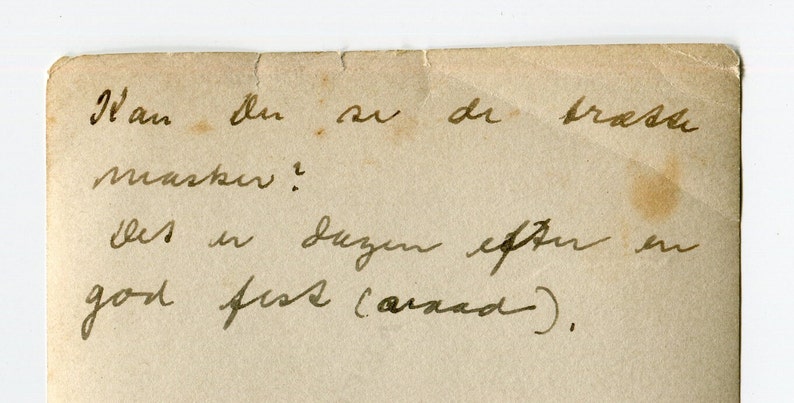 Kan Du se de trætte
masker?
Det er dagen efter en
god fest (avaad).